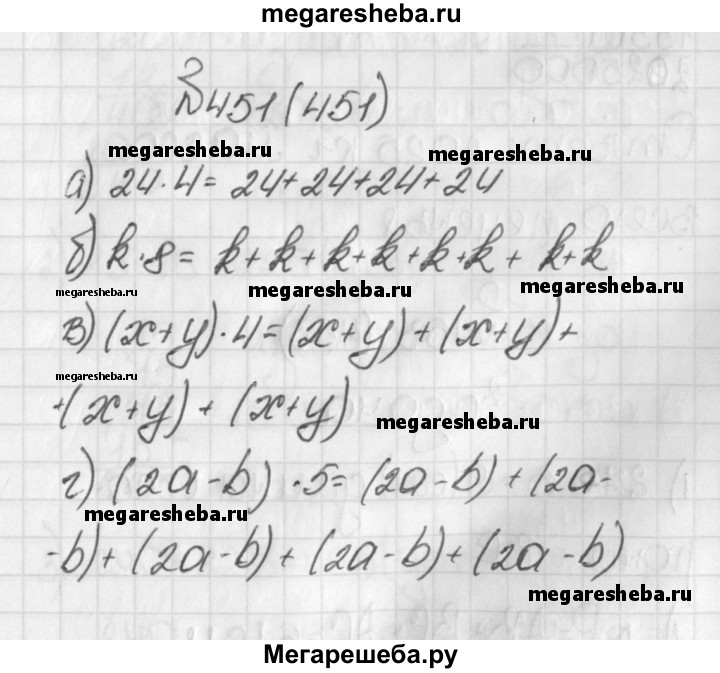 megaresheba.ru
№451 (451)
megaresheba.ru
megaresheba.ru
а) 24·4= 24+24+24+24
б) k·8= k+k+k+k+k+k+ k+k
megaresheba.ru
megaresheba.ru
megaresheba.ru
в) (x+y)·4=(x+y)+(x+y)+
megaresheba.ru
+(x+y) + (x+y)
megaresheba.ru
г) (2a-b) ·5= (2a-b) + (2a-
megaresheba.ru
-b)+ (2a-b) + (2a-b)+ (2a-b)
megaresheba.ru
Мегарешеба.ру